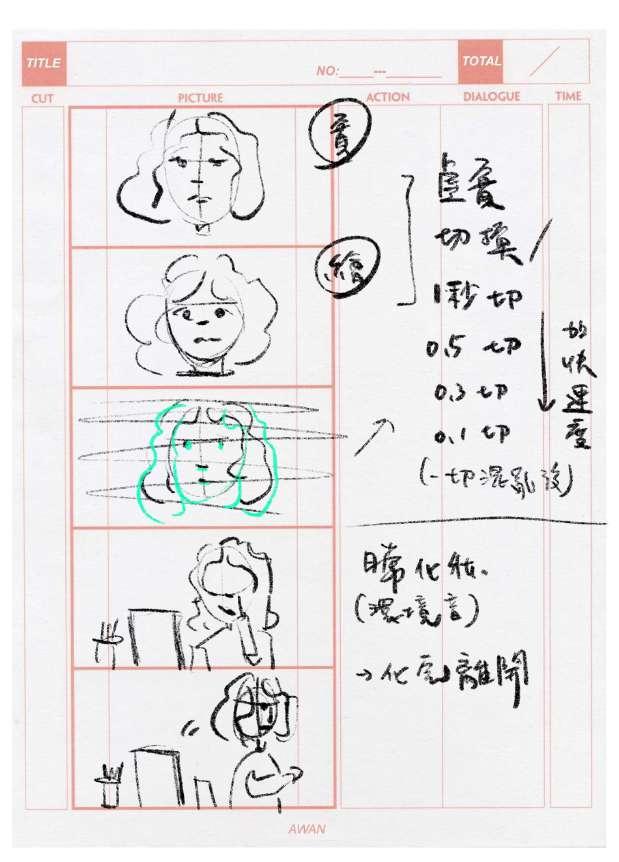 TITLE
NO:_____---________
TOTAL
CUT
PICTURE
ACTION
DIALOGUE
TIME
實
繪
虛實
切換
1秒 切
0.5 切
0.3 切
0.1 切
(一切混亂後)
加快速度
日常化妝.
(環境音)
→化完離開
AWAN